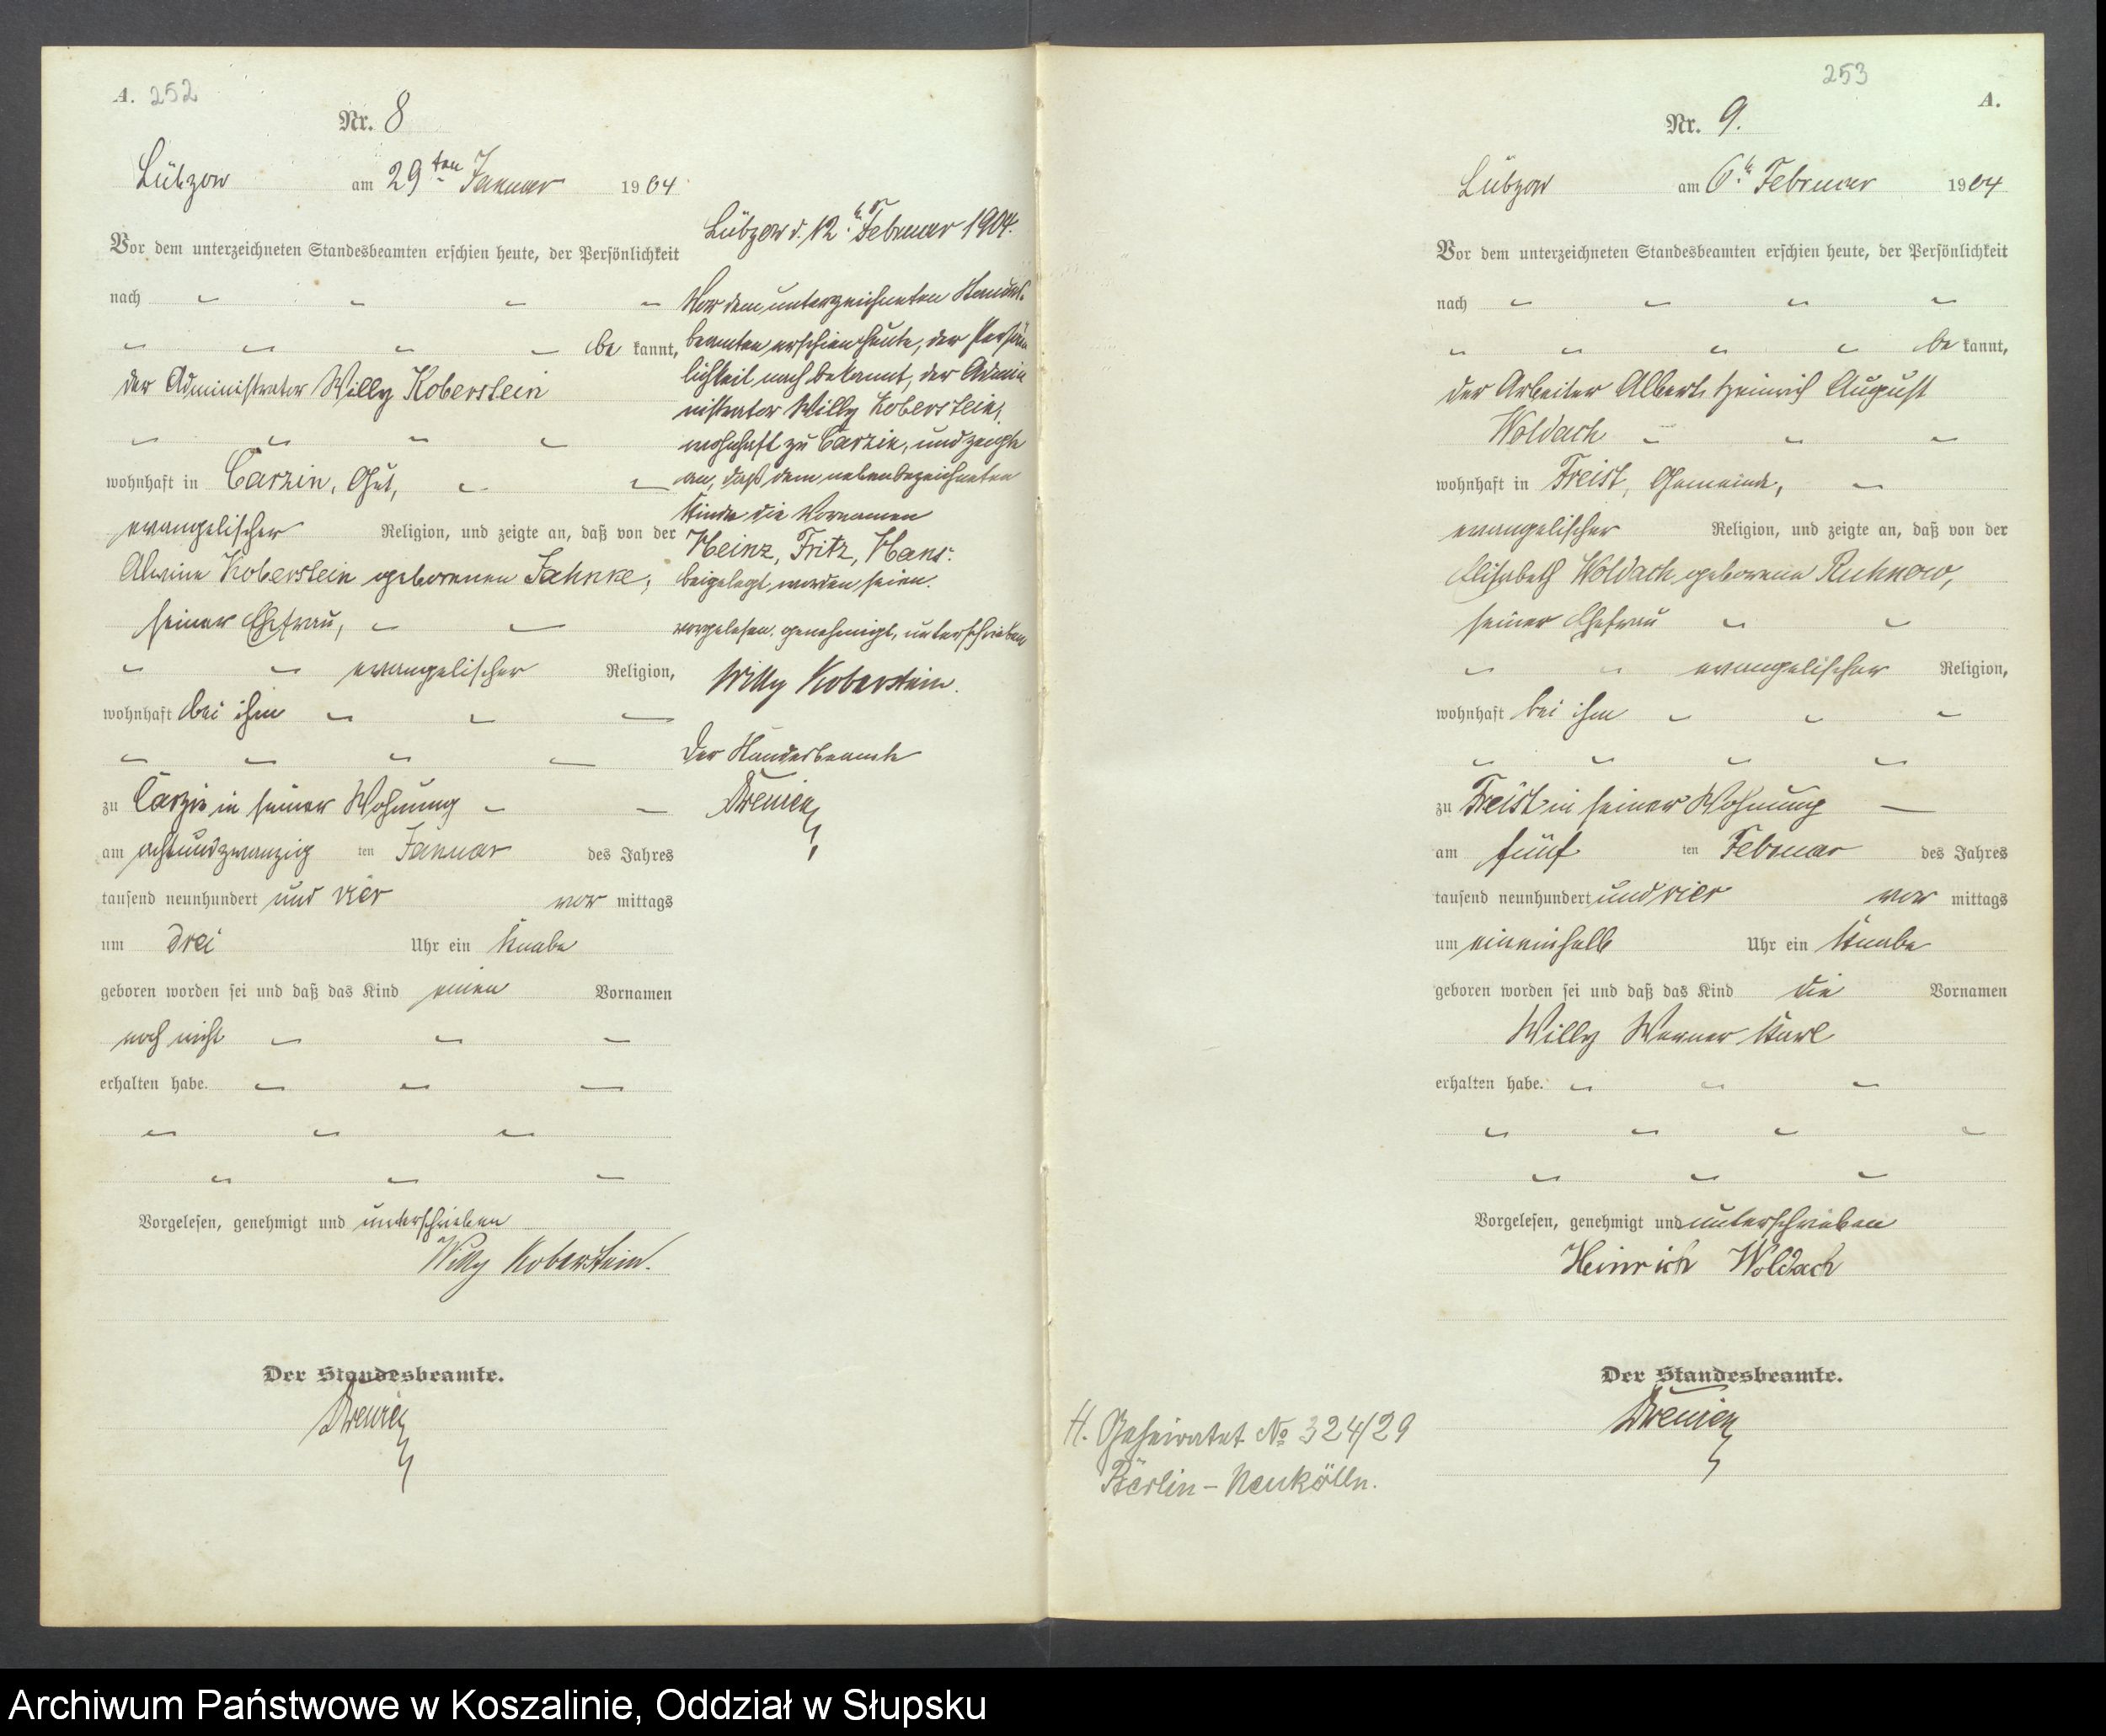 A. 252
Nr. 8
Lübzow am 29ten Januar 1904
Vor dem unterzeichneten Standesbeamten erschien heute, der Persönlichkeit
nach
bekannt,
der Administrator Willy Koberstein
wohnhaft in Carzin, Gut,
evangelischer Religion, und zeigte an, daß von der
Alwine Koberstein geborenen Jahnke,
seiner Ehefrau,
evangelischer Religion,
wohnhaft bei ihm
zu Carzin in seiner Wohnung
am achtundzwanzig ten Januar des Jahres
tausend neunhundert und vier vor mittags
um drei Uhr ein Knabe
geboren worden sei und daß das Kind einen Vornamen
noch nicht
erhalten habe.
Vorgelesen, genehmigt und unterschrieben
Willy Koberstein.
Der Standesbeamte.
Lübzow d. 12. Februar 1904.
Vor dem unterzeichneten Standes-
beamten erschien heute, der Persön
lichkeit nach bekannt, der Admi
nistrator Willy Koberstein,
wohnhaft zu Carzin, und zeigte
an, daß dem nebenbezeichneten
Kinde die Vornamen
Heinz, Fritz, Hans
beigelegt worden seien.
vorgelesen, genehmigt, unterschrieben
Willy Koberstein.
Der Standesbeamte
253
A.
Nr. 9.
Lübzow am 6ten Februar 1904
Vor dem unterzeichneten Standesbeamten erschien heute, der Persönlichkeit
nach
bekannt,
der Arbeiter Albert Heinrich August
Woldach
wohnhaft in Freist, Gemeinde,
evangelischer Religion, und zeigte an, daß von der
Elisabeth Woldach geborene Ruhnow,
seiner Ehefrau
evangelischer Religion,
wohnhaft bei ihm
zu Freist in seiner Wohnung
am fünf ten Februar des Jahres
tausend neunhundert und vier vor mittags
um eineinhalb Uhr ein Knabe
geboren worden sei und daß das Kind die Vornamen
Willy Werner Karl
erhalten habe.
Vorgelesen, genehmigt und unterschrieben
Heinrich Woldach
Der Standesbeamte.
H. Geheiratet No 324/29
Berlin - Neukölln.
Archiwum Państwowe w Koszalinie, Oddział w Słupsku